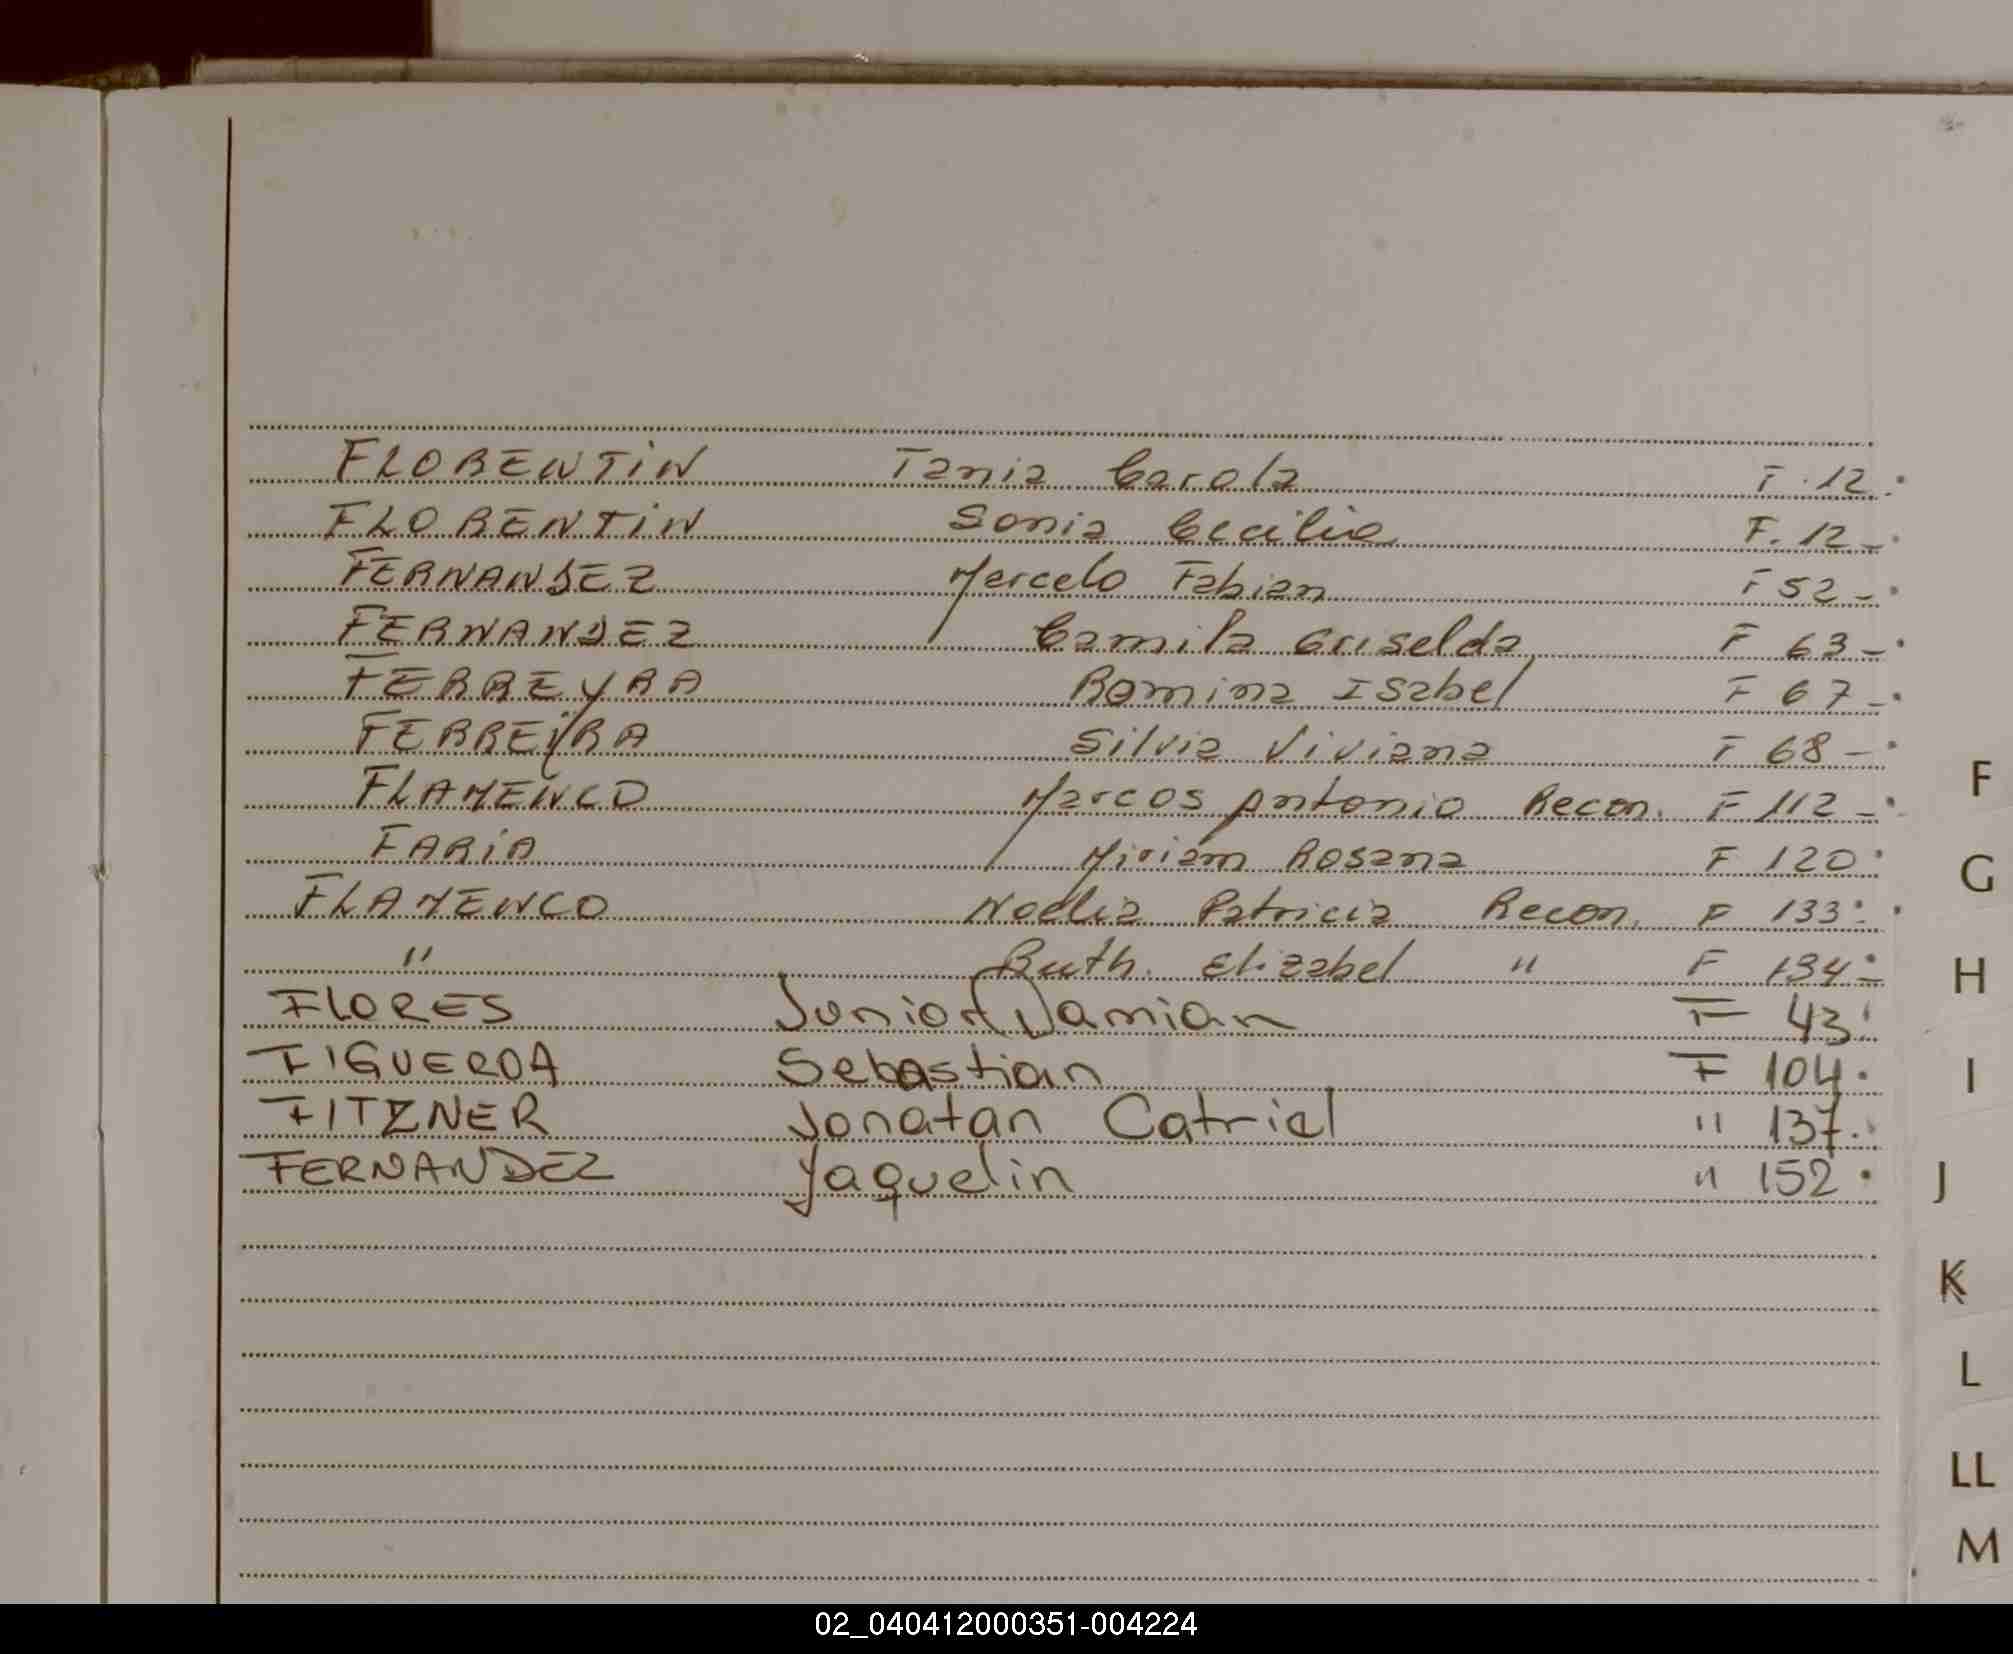 FLORENTiN Tania Carola F. 12.
FLORENTiN Sonia Cecilia F. 12-
FERNANDEZ Marcelo Fabian F 52-
FERNANDEZ Camila Griselda F 63-
FERREYRA Romina Isabel F 67-
FERREYRA Silvia Viviana F 68-
FLAMENCO Marcos Antonio Recon. F 112-
FARiA Miriam Rosana F 120
FLAMENCO Noelia Patricia Recon. F 133
" Ruth Elizabel " F 134
FLORES Junior Damian F 43
FIGUEROA Sebastian F 104.
FITZNER Jonatan Catriel " 137.
FERNANDEZ Yaquelin " 152.
F
G
H
I
J
K
L
LL
M
02_040412000351-004224